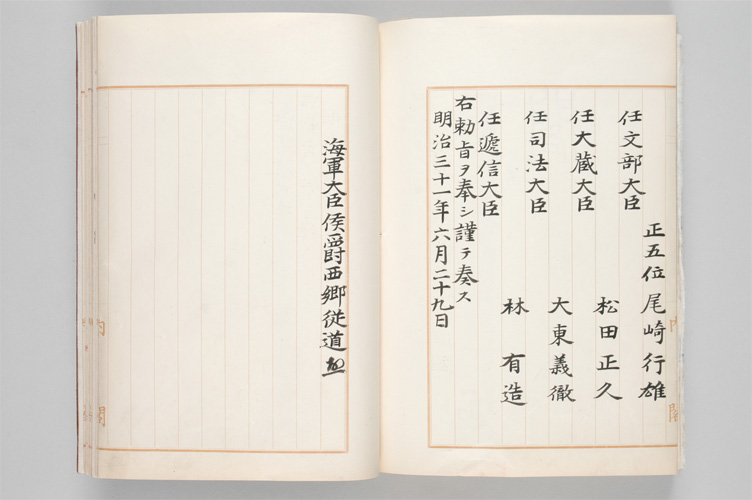 正五位 尾崎行雄
任文部大臣
松田正久
任大蔵大臣
大東義徹
任司法大臣
林有造
任逓信大臣
右勅旨ヲ奉シ謹テ奏ス
明治三十一年六月二十九日
海軍大臣侯爵西郷従道
内閣
内閣